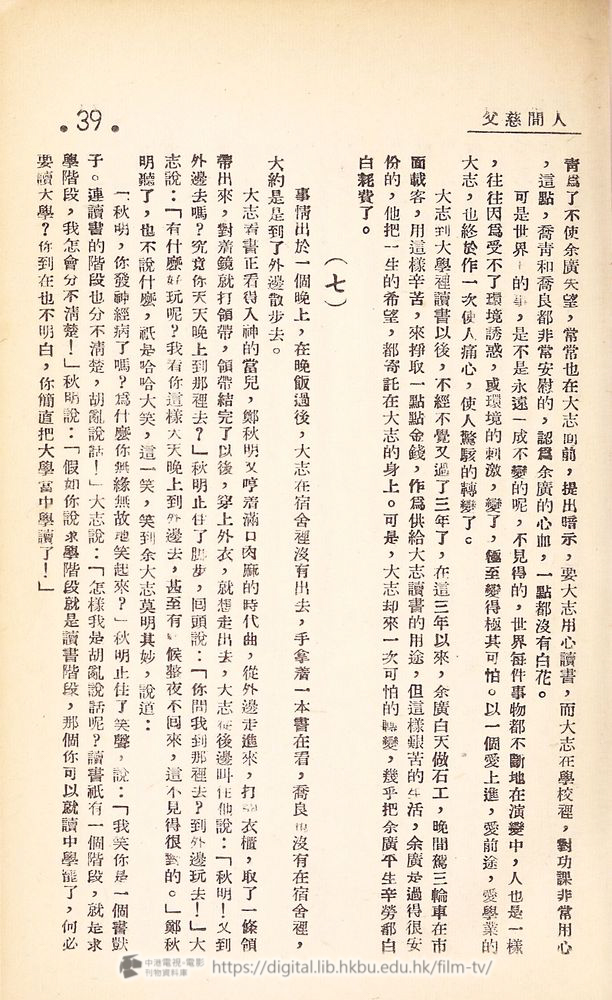 人間慈父
.39.
青爲了不使余廣失望，常常也在大志面前，提出暗示，要大志用心讀書，而大志在學校裡，對功課非常用心
，這點，喬青和喬良都非常安慰的，認爲余廣的心血，一點都沒有白花。
可是世界上的事，是不是永遠一成不變的呢，不見得的，世界每件事物都不斷地在演變中，人也是一樣
，往往因爲受不了環境誘惑，或環境的刺激，變了，極至變得極其可怕。以一個愛上進，愛前途，愛學業的
大志，也終於作一次使人痛心，使人驚駭的轉變了。
大志到大學裡讀書以後，不經不覺又過了三年了，在這三年以來，余廣白天做石工，晚間駕三輪車在市
面載客，用這樣辛苦，來掙取一點點金錢，作爲供給大志讀書的用途，但這樣艱苦的生活，余廣是過得很安
份的，他把一生的希望，都寄託在大志的身上。可是，大志却來一次可怕的轉變，幾乎把余廣平生辛勞都白
白耗費了。
（七）
事情出於一個晚上，在晚飯過後，大志在宿舍裡沒有出去，手拿着一本書在看，喬良也沒有在宿舍裡，
大約是是到了外邊散步去。
大志看書正看得入神的當兒，鄭秋明又哼着滿口肉麻的時代曲，從外邊走進來，打開衣櫃，取了一條領
帶出來，對着鏡就打領帶，領帶結完了以後，穿上外衣，就想走出去，大志從後邊叫住他說：「秋明！又到
外邊去嗎？究竟你天天晚上到那裡去？」秋明止住了脚步，回頭說：「你問我到那裡去？到外邊玩去！」大
志說：「有什麼好玩呢？我看你這樣天天晚上到外邊去，甚至有時候整夜不回來，這不見得很對的。」鄭秋
明聽了，也不說什麼，祇是哈哈大笑，這一笑，笑到余大志莫明其妙，說道：
「秋明，你發神經病了嗎？爲什麼你無緣無故地笑起來？」秋明止住了笑聲，說：「我笑你是一個書獃
子。連讀書的階段也分不清楚，胡亂說話！」大志說：「怎樣我是胡亂說話呢？讀書祇有一個階段，就是求
學階段，我怎會分不清楚！」秋明說：「假如你說求學階段就是讀書階段，那個你可以就讀中學罷了，何必
要讀大學？你到在也不明白，你簡直把大學當中學讀了！」
中港電視·電影
刊物資料庫
https://digital.lib.hkbu.edu.hk/film-tv/